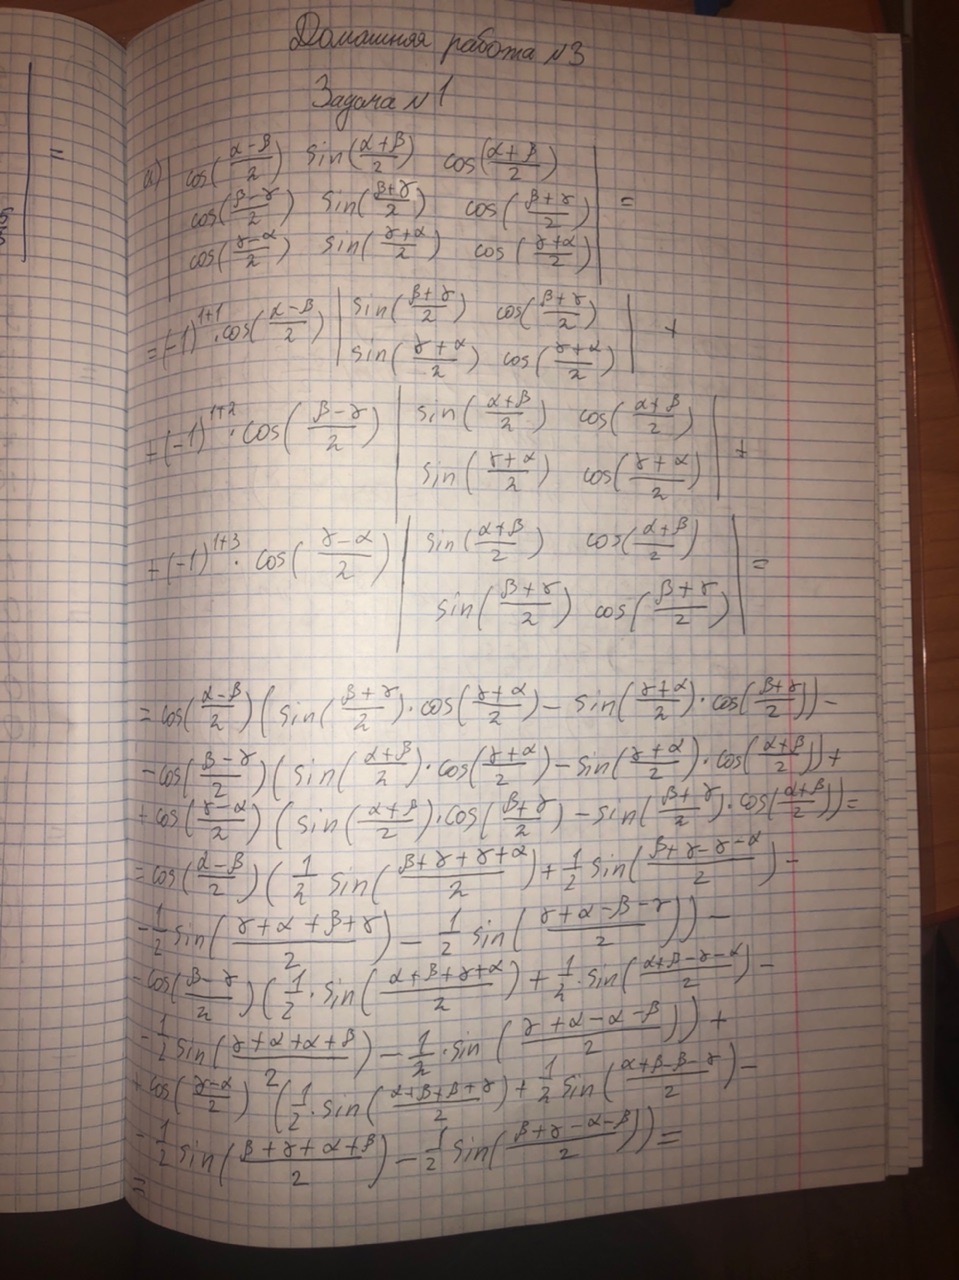 Домашняя работа №3
Задача №1
а) | cos((α-β)/2) sin((α+β)/2) cos((α+β)/2) |
| cos((β-γ)/2) sin((β+γ)/2) cos((β+γ)/2) | =
| cos((γ-α)/2) sin((γ+α)/2) cos((γ+α)/2) |
= (-1)^(1+1) · cos((α-β)/2) | sin((β+γ)/2) cos((β+γ)/2) | +
| sin((γ+α)/2) cos((γ+α)/2) |
+ (-1)^(1+2) · cos((β-γ)/2) | sin((α+β)/2) cos((α+β)/2) | +
| sin((γ+α)/2) cos((γ+α)/2) |
+ (-1)^(1+3) · cos((γ-α)/2) | sin((α+β)/2) cos((α+β)/2) | =
| sin((β+γ)/2) cos((β+γ)/2) |
= cos((α-β)/2) (sin((β+γ)/2) · cos((γ+α)/2) - sin((γ+α)/2) · cos((β+γ)/2)) -
- cos((β-γ)/2) (sin((α+β)/2) · cos((γ+α)/2) - sin((γ+α)/2) · cos((α+β)/2)) +
+ cos((γ-α)/2) (sin((α+β)/2) · cos((β+γ)/2) - sin((β+γ)/2) · cos((α+β)/2)) =
= cos((α-β)/2) (1/2 sin((β+γ+γ+α)/2) + 1/2 sin((β+γ-γ-α)/2) -
- 1/2 sin((γ+α+β+γ)/2) - 1/2 sin((γ+α-β-γ)/2)) -
- cos((β-γ)/2) (1/2 · sin((α+β+γ+α)/2) + 1/2 · sin((α+β-γ-α)/2) -
- 1/2 sin((γ+α+α+β)/2) - 1/2 · sin((γ+α-α-β)/2)) +
+ cos((γ-α)/2) (1/2 · sin((α+β+β+γ)/2) + 1/2 sin((α+β-β-γ)/2) -
- 1/2 sin((β+γ+α+β)/2) - 1/2 sin((β+γ-α-β)/2)) =
=